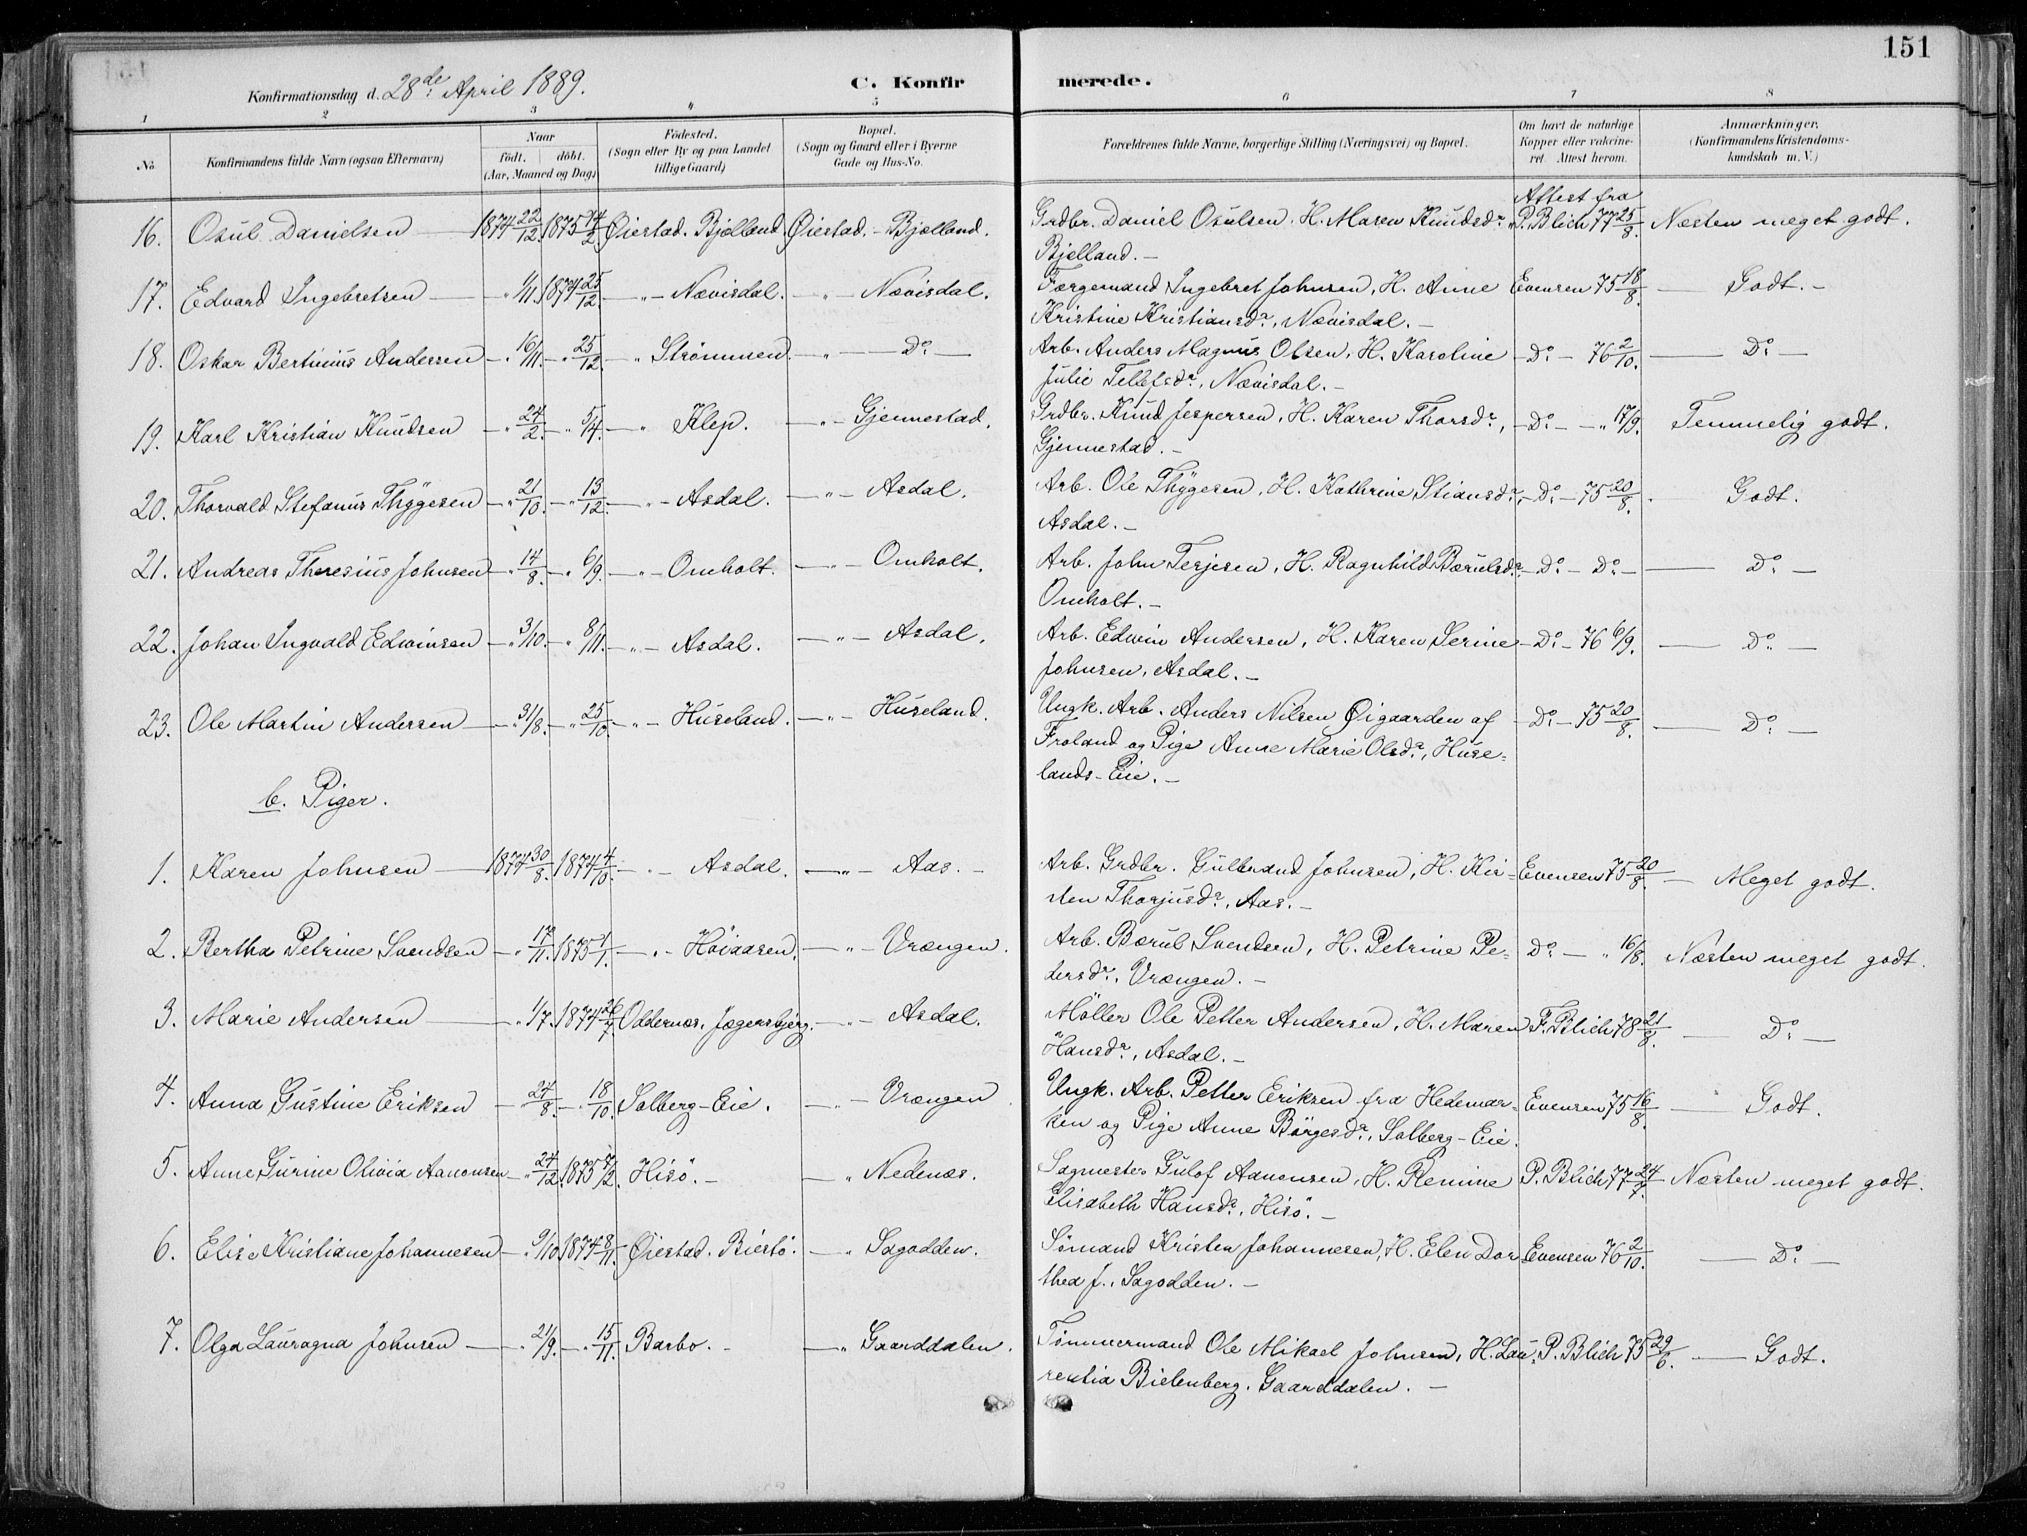 151
Konfirmationsdag d. 28de April 1889.
C. Konfirmerede.
1 2 3 4 5 6 7 8
No Konfirmandens fulde Navn (ogsaa Efternavn) Naar født. døbt. (Aar, Maaned og Dag) Fødested. (Sogn eller By og paa Landet tillige Gaard) Bopæl. (Sogn og Gaard eller i Byerne Gade og Hus-No. Forældrenes fulde Navne, borgerlige Stilling (Næringsvei) og Bopæl. Om havt de naturlige Kopper eller vakcineret. Attest herom. Anmærkninger. (Konfirmandens Kristendomskundskab m. V.)
Attest fra
16. Osul Danielsen 1874 22/12. 1875 14/2 Øiestad. Bjelland. Øiestad. - Bjelland. Grdbr. Daniel Osulsen. H. Maren Knudsdr. P. Blich 77 25/8. Næsten meget godt.
Bjelland. -
17. Edvard Ingebretsen - " 1/11. 1874 25/12. - " - Nævisdal. - " - Nævisdal. Færgemand Ingebret Johnsen, H. Anne Evensen 75 18/8. - Godt. -
Kristine Kristiansdr., Nævisdal. -
18. Oskar Bertinius Andersen - " 16/11. - " 25/12. - " Strømmen. - " - Do. - Arb. Anders Magnus Olsen, H. Karoline - Do. - 76 2/10. - Do. -
Julie Tellefsdr., Nævisdal. -
19. Karl Kristian Knudsen - " 24/2. - " 5/4. - " Klep. - " - Gjennestad. Grdbr. Knud Jespersen, H. Karen Thorsdr., - Do. - - " 17/9. Temmelig godt.
Gjennestad. -
20. Thorvald Stefanus Thygesen - " 21/10. - " 13/12. - " - Asdal. - " - Asdal. Arb. Ole Thygesen, H. Kathrine Stiansdr., - Do. - 75 20/8. - Godt.
Asdal. -
21. Andreas Theresius Johnsen - " 14/8. - " 6/9. - " - Omholt. - " - Omholt. Arb. John Terjesen, H. Ragnhild Børulsdr., - Do. - Do. - - Do. -
Omholt. -
22. Johan Ingvald Edwinsen - " 3/10. - " 8/11. - " - Asdal. - " - Asdal. Arb. Edwin Andersen, H. Karen Serine - Do. - 76 6/9. - Do. -
Johnsen, Asdal. -
23. Ole Martin Andersen - " 31/8. - " 25/10. - " - Huseland. - " - Huseland. Ungk. Arb. Anders Nilsen Øigaarden af - Do. - 75 20/8. - Do. -
Froland og Pige Anne Marie Olsdr., Huse=
lands-Eie. -
b. Piger.
1. Karen Johnsen 1874 30/8. 1874 4/10. - " - Asdal. - " - Aas. - Arb. Grdbr. Gulbrand Johnsen, H. Kir= Evensen 75 20/8. - Meget godt.
sten Thorjusdr., Aas. -
2. Bertha Petrine Svendsen - " 17/11. 1875 1/1. - " - Høiaasen. - " - Vrængen. Arb. Børul Svendsen, H. Petrine Pe- Do. - " 16/8. Næsten meget godt.
dersdr., Vrængen. -
3. Marie Andersen - " 1/7. 1874 26/7. Oddernæs, Jægersbjerg. - " - Asdal. Møller Ole Petter Andersen, H. Maren F. Blich 78 21/8. - Do. -
Hansdr., Asdal. -
4. Anna Gustine Eriksen - " 24/8. - " 18/10. Solberg-Eie. - " - Vrængen Ungk. Arb. Petter Eriksen fra Hedemar= Evensen 75 16/8. - Godt.
ken og Pige Anne Børgesdr., Solberg-Eie.
5. Anne Gurine Olivia Aanonsen - " 24/12. 1875 7/2. Hisö. - - " Nedenæs. Sagmester Gulof Aanonsen, H. Plemine P. Blich 77 24/7. Næsten meget godt.
Elisabeth Hansdr., Hisö. -
6. Elise Kristiane Johannesen - " 9/10. 1874 8/11. Øiestad. Biestø. - " Sagodden. Sømand Kristen Johannesen, H. Elen Dor Evensen 76 2/10. - Do. -
thea J., Sagodden. -
7. Olga Lauragna Johnsen - " 21/9. - " 15/11. Barbo. - - " Gaarddalen. Tømmermand Ole Mikael Johnsen, H. Lau= P. Blich 75 29/6. - Godt.
rentia Bielenberg, Gaarddalen. -